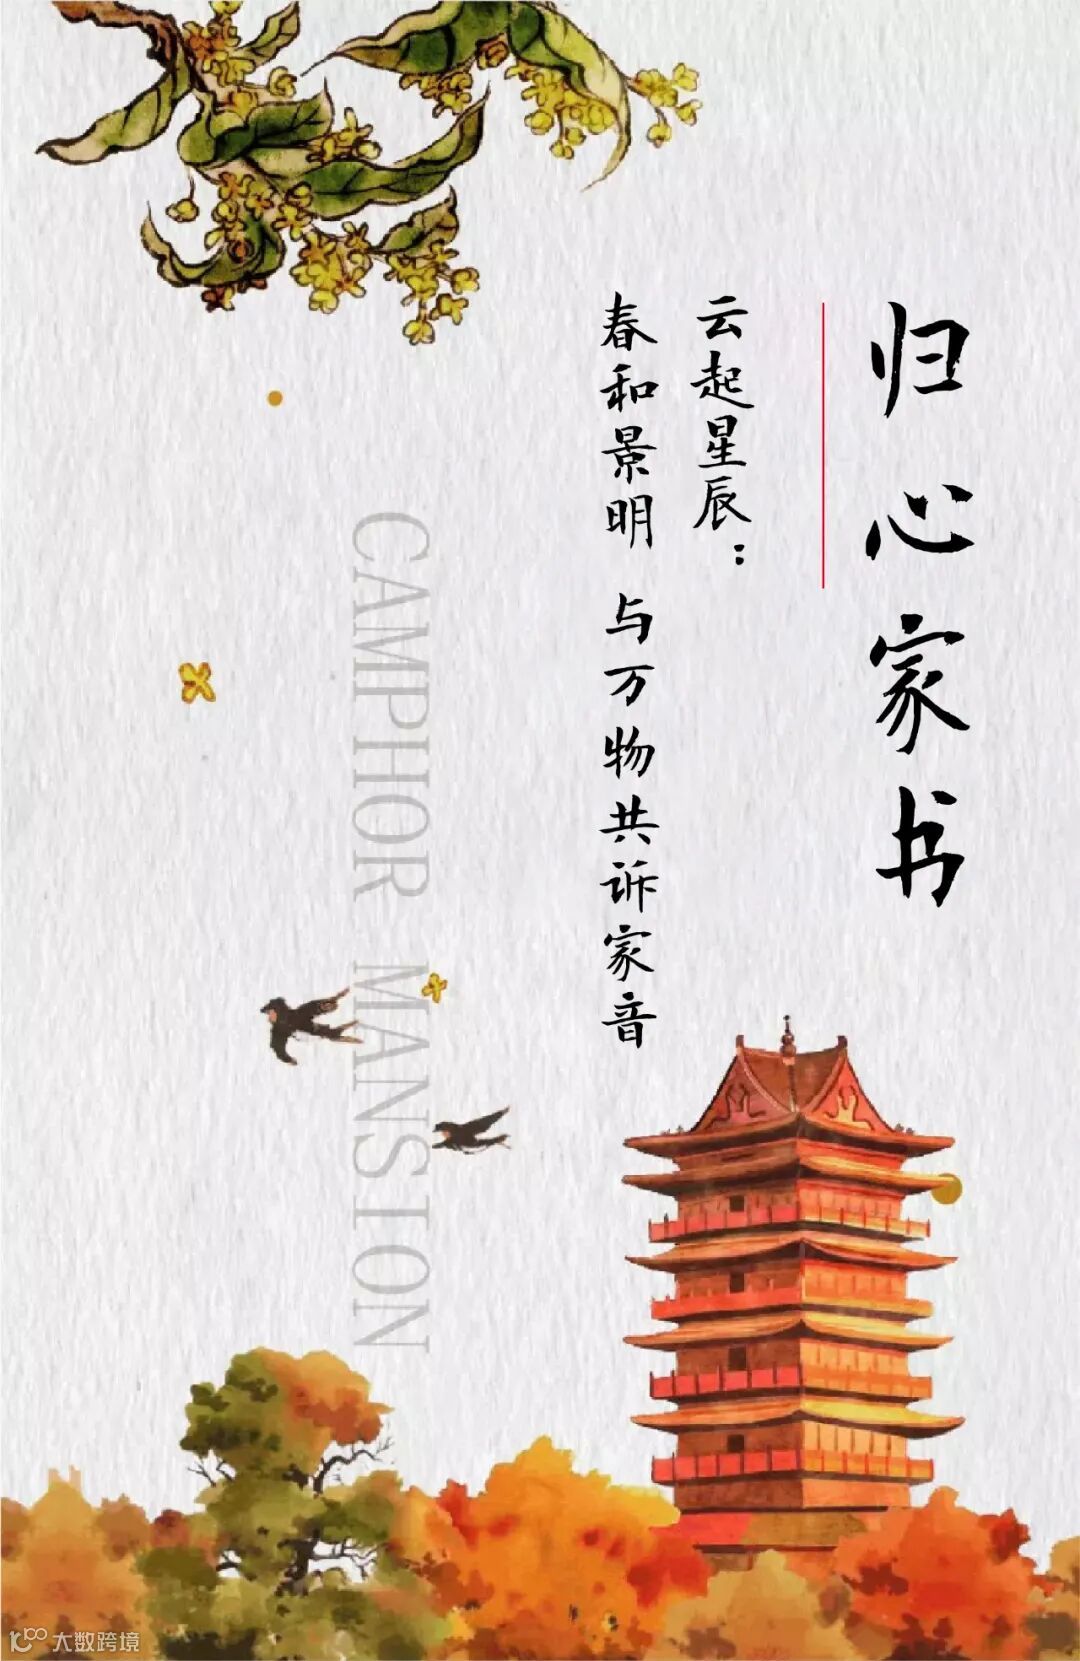 归心家书
云起星辰：
春和景明 与万物共诉家音
CAMPHOR MANSION
大数跨境